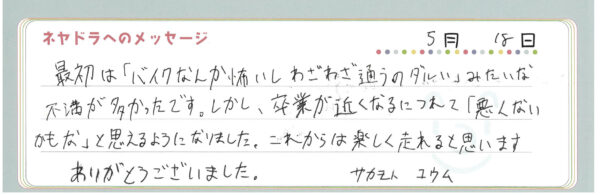 ネヤドラへのメッセージ
5月 18日
最初は「バイクなんか怖いし わざわざ通うのダルい」みたいな
不満が多かったです。しかし、卒業が近くなるにつれて「悪くない
かもな」と思えるようになりました。これからは楽しく走れると思います
ありがとうございました。 サカモト ユウム